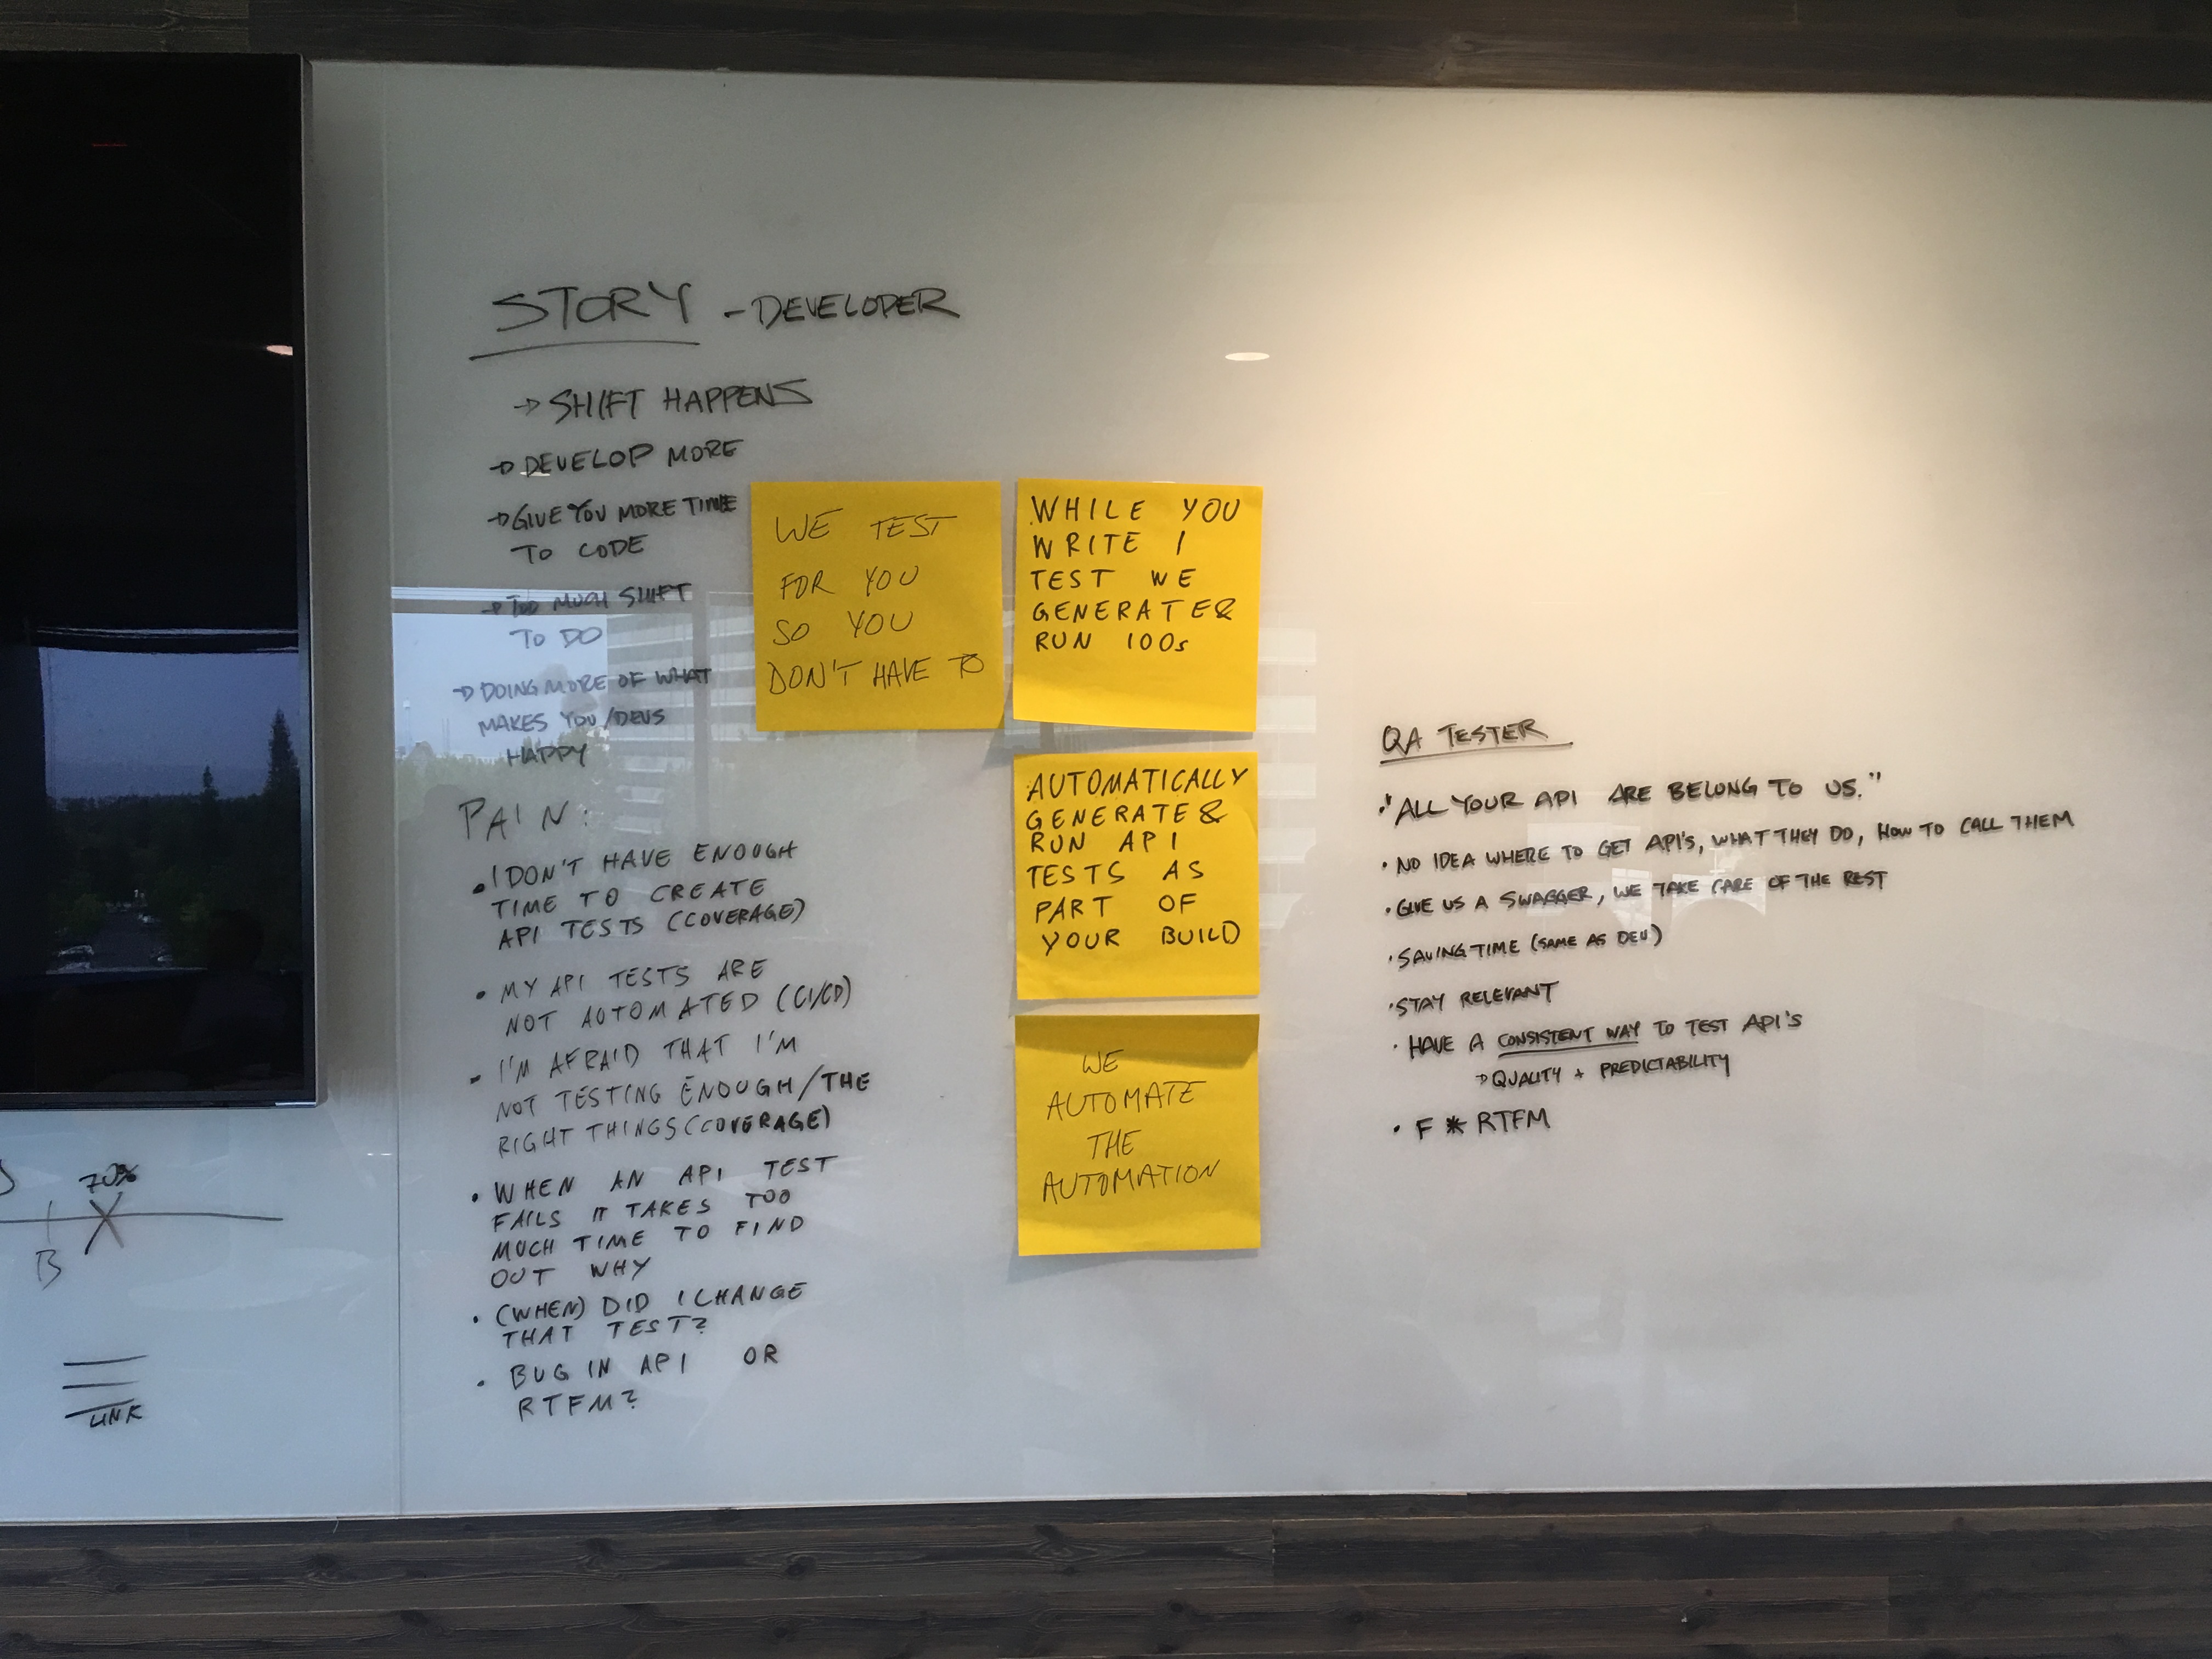 STORY - DEVELOPER
→ SHIFT HAPPENS
→ DEVELOP MORE
→ GIVE YOU MORE TIME
TO CODE
→ TOO MUCH SHIFT
TO DO
→ DOING MORE OF WHAT
MAKES YOU/DEVS
HAPPY
PAIN:
• I DON'T HAVE ENOUGH
TIME TO CREATE
API TESTS (COVERAGE)
• MY API TESTS ARE
NOT AUTOMATED (CI/CD)
- I'M AFRAID THAT I'M
NOT TESTING ENOUGH/THE
RIGHT THINGS (COVERAGE)
• WHEN AN API TEST
FAILS IT TAKES TOO
MUCH TIME TO FIND
OUT WHY
• (WHEN) DID I CHANGE
THAT TEST?
• BUG IN API OR
RTFM?
WE TEST
FOR YOU
SO YOU
DON'T HAVE TO
WHILE YOU
WRITE 1
TEST WE
GENERATE &
RUN 100s
AUTOMATICALLY
GENERATE &
RUN API
TESTS AS
PART OF
YOUR BUILD
WE
AUTOMATE
THE
AUTOMATION
QA TESTER
• "ALL YOUR API ARE BELONG TO US."
• NO IDEA WHERE TO GET API'S, WHAT THEY DO, HOW TO CALL THEM
• GIVE US A SWAGGER, WE TAKE CARE OF THE REST
• SAVING TIME (SAME AS DEV)
• STAY RELEVANT
• HAVE A CONSISTENT WAY TO TEST API'S
→ QUALITY + PREDICTABILITY
• F * RTFM
70%
X
B
LINK